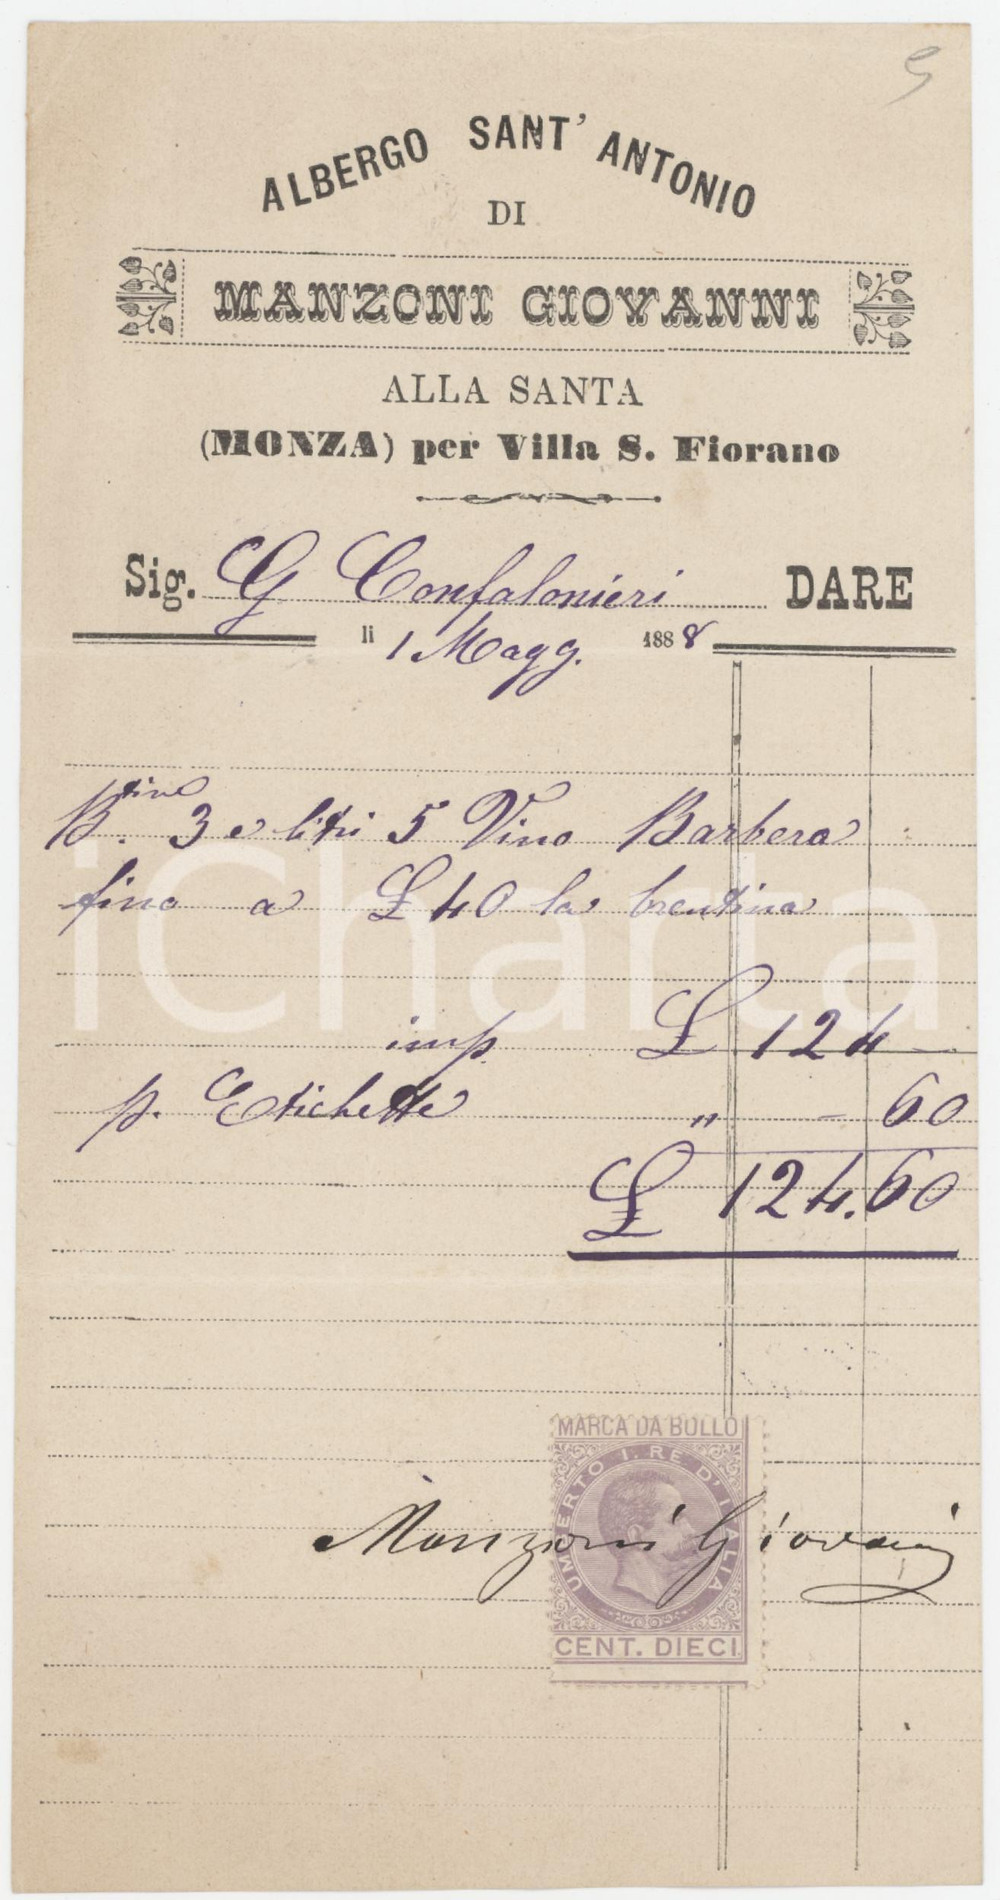 5
ALBERGO SANT' ANTONIO
DI
MANZONI GIOVANNI
ALLA SANTA
(MONZA) per Villa S. Fiorano
Sig. G Confalonieri DARE
li 1 Magg. 1888
Btine. 3 e litri 5 Vino Barbera
fino a £ 40 la brentina
iCharta
imp. £ 124 —
p. Etichette " - 60
£ 124.60
MARCA DA BOLLO
UMBERTO I. RE D'ITALIA
Manzoni Giovanni
CENT. DIECI